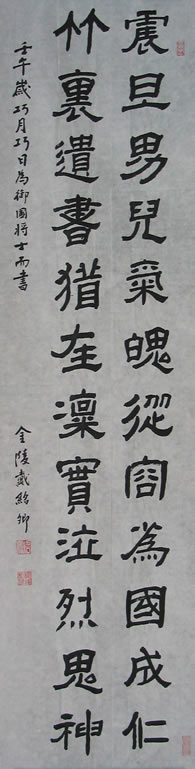 震旦男兒氣魄從容為國成仁
竹裏遺書猶在凜實泣烈思神
壬午歲巧月巧日為御國將士而書
金陵戴紹卿